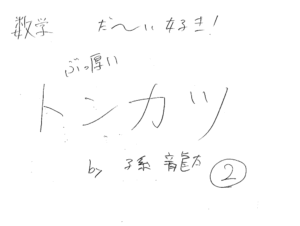 数学 だ〜い好き!
ぶっ厚い
トンカツ
by 孫 龍方 ②